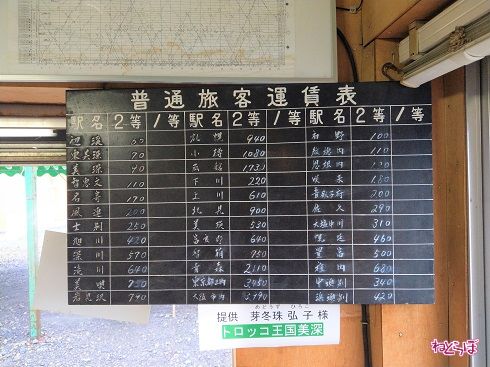 普通旅客運賃表
駅名 2等 1等 駅名 2等 1等 駅名 2等 1等
札幌 940 100
東美深 70 小樽 1080 110
美深 90 函館 1730 恩根内
智恵文 110 下川 220 咲来 180
名寄 170 上川 610 音威子府 200
風連 200 北見 900 佐久 290
士別 250 美瑛 530 天塩中川 310
旭川 420 富良野 640 幌延 460
深川 570 豊富 500
滝川 640 青森 2110 稚内 680
美唄 東京都区内 3450 中頓別 340
岩見沢 790 大阪市内 浜頓別 420
めどうず ひろこ
提供 芽冬珠 弘子 様
トロッコ王国美深
ねとらぼ